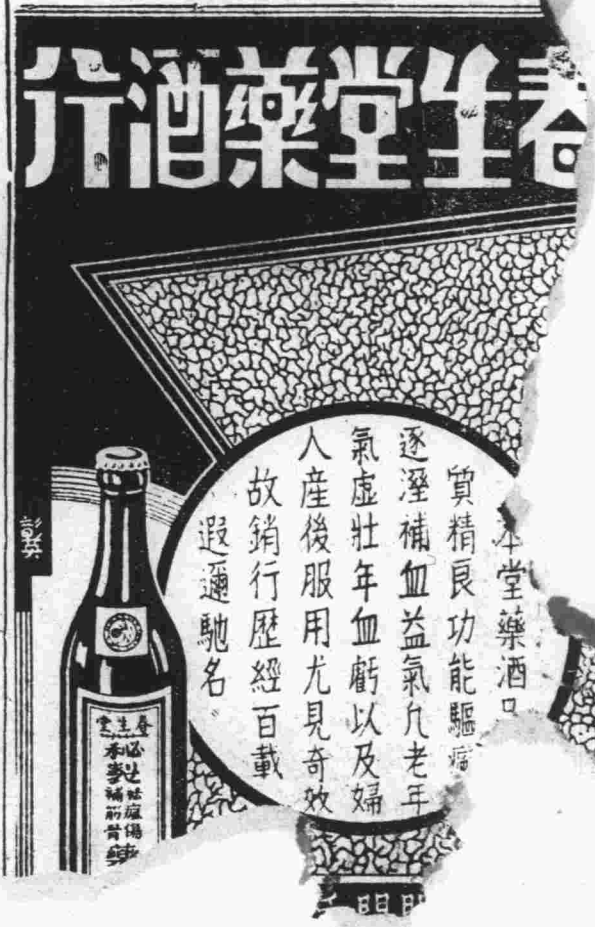 春生堂藥酒行
本堂藥酒
質精良功能驅
逐溼補血益氣凢老年
氣虛壯年血虧以及婦
人產後服用尤見奇效
故銷行歷經百載
遐邇馳名
春生堂
祛瘟傷
本堂補筋骨藥